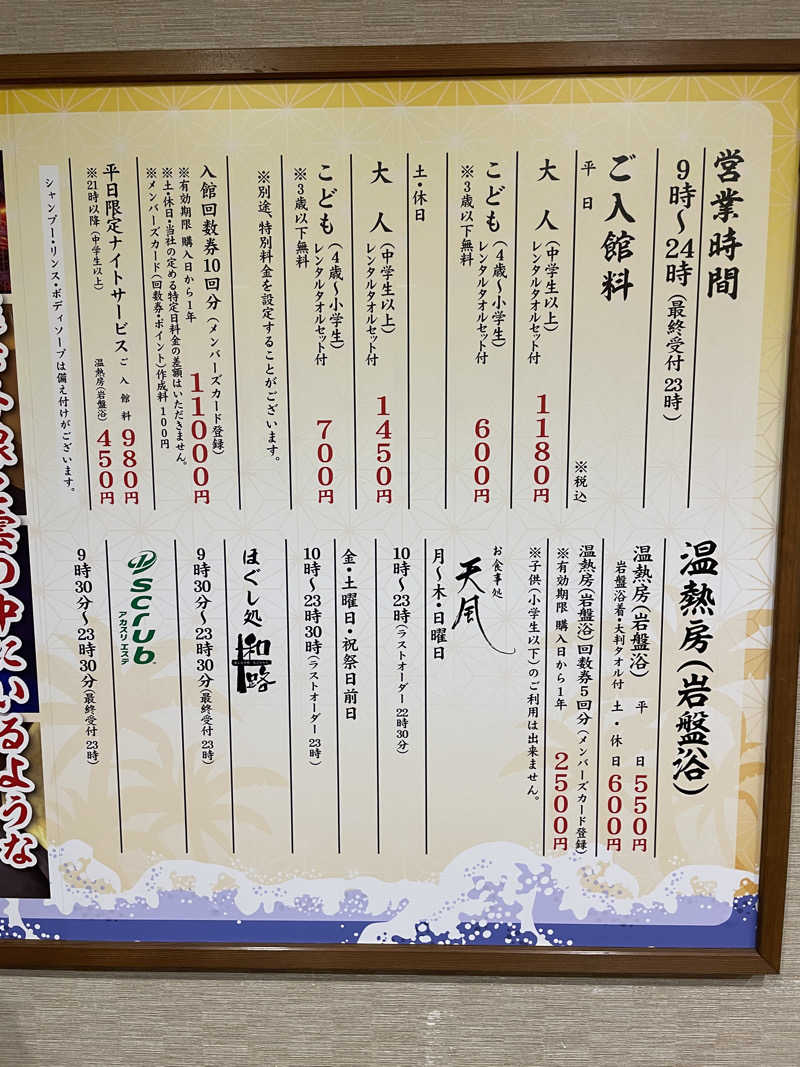 営業時間
9時～24時(最終受付 23時)
ご入館料
平日
※税込
大人(中学生以上)
レンタルタオルセット付
1180円
こども(4歳～小学生)
レンタルタオルセット付
※3歳以下無料
600円
土・休日
大人(中学生以上)
レンタルタオルセット付
1450円
こども(4歳～小学生)
レンタルタオルセット付
※3歳以下無料
700円
※別途、特別料金を設定することがございます。
入館回数券10回分(メンバーズカード登録)
11000円
※有効期限 購入日から1年
※土・休日・当社の定める特定日料金の差額はいただきません。
※メンバーズカード(回数券・ポイント)作成料 100円
平日限定ナイトサービス
※21時以降(中学生以上)
ご入館料 980円
温熱房(岩盤浴) 450円
シャンプー・リンス・ボディソープは備え付けがございます。
温熱房(岩盤浴)
温熱房(岩盤浴) 平日 550円
岩盤浴着・大判タオル付 土・休日 600円
温熱房(岩盤浴)回数券5回分(メンバーズカード登録)
※有効期限 購入日から1年
2500円
※子供(小学生以下)のご利用は出来ません。
お食事処
天風
月～木・日曜日
10時～23時(ラストオーダー 22時30分)
金・土曜日・祝祭日前日
10時～23時30時(ラストオーダー 23時)
ほぐし処 和路
9時30分～23時30分(最終受付 23時)
scrub
アカスリエステ
9時30分～23時30分(最終受付 23時)
雲の中にいるような